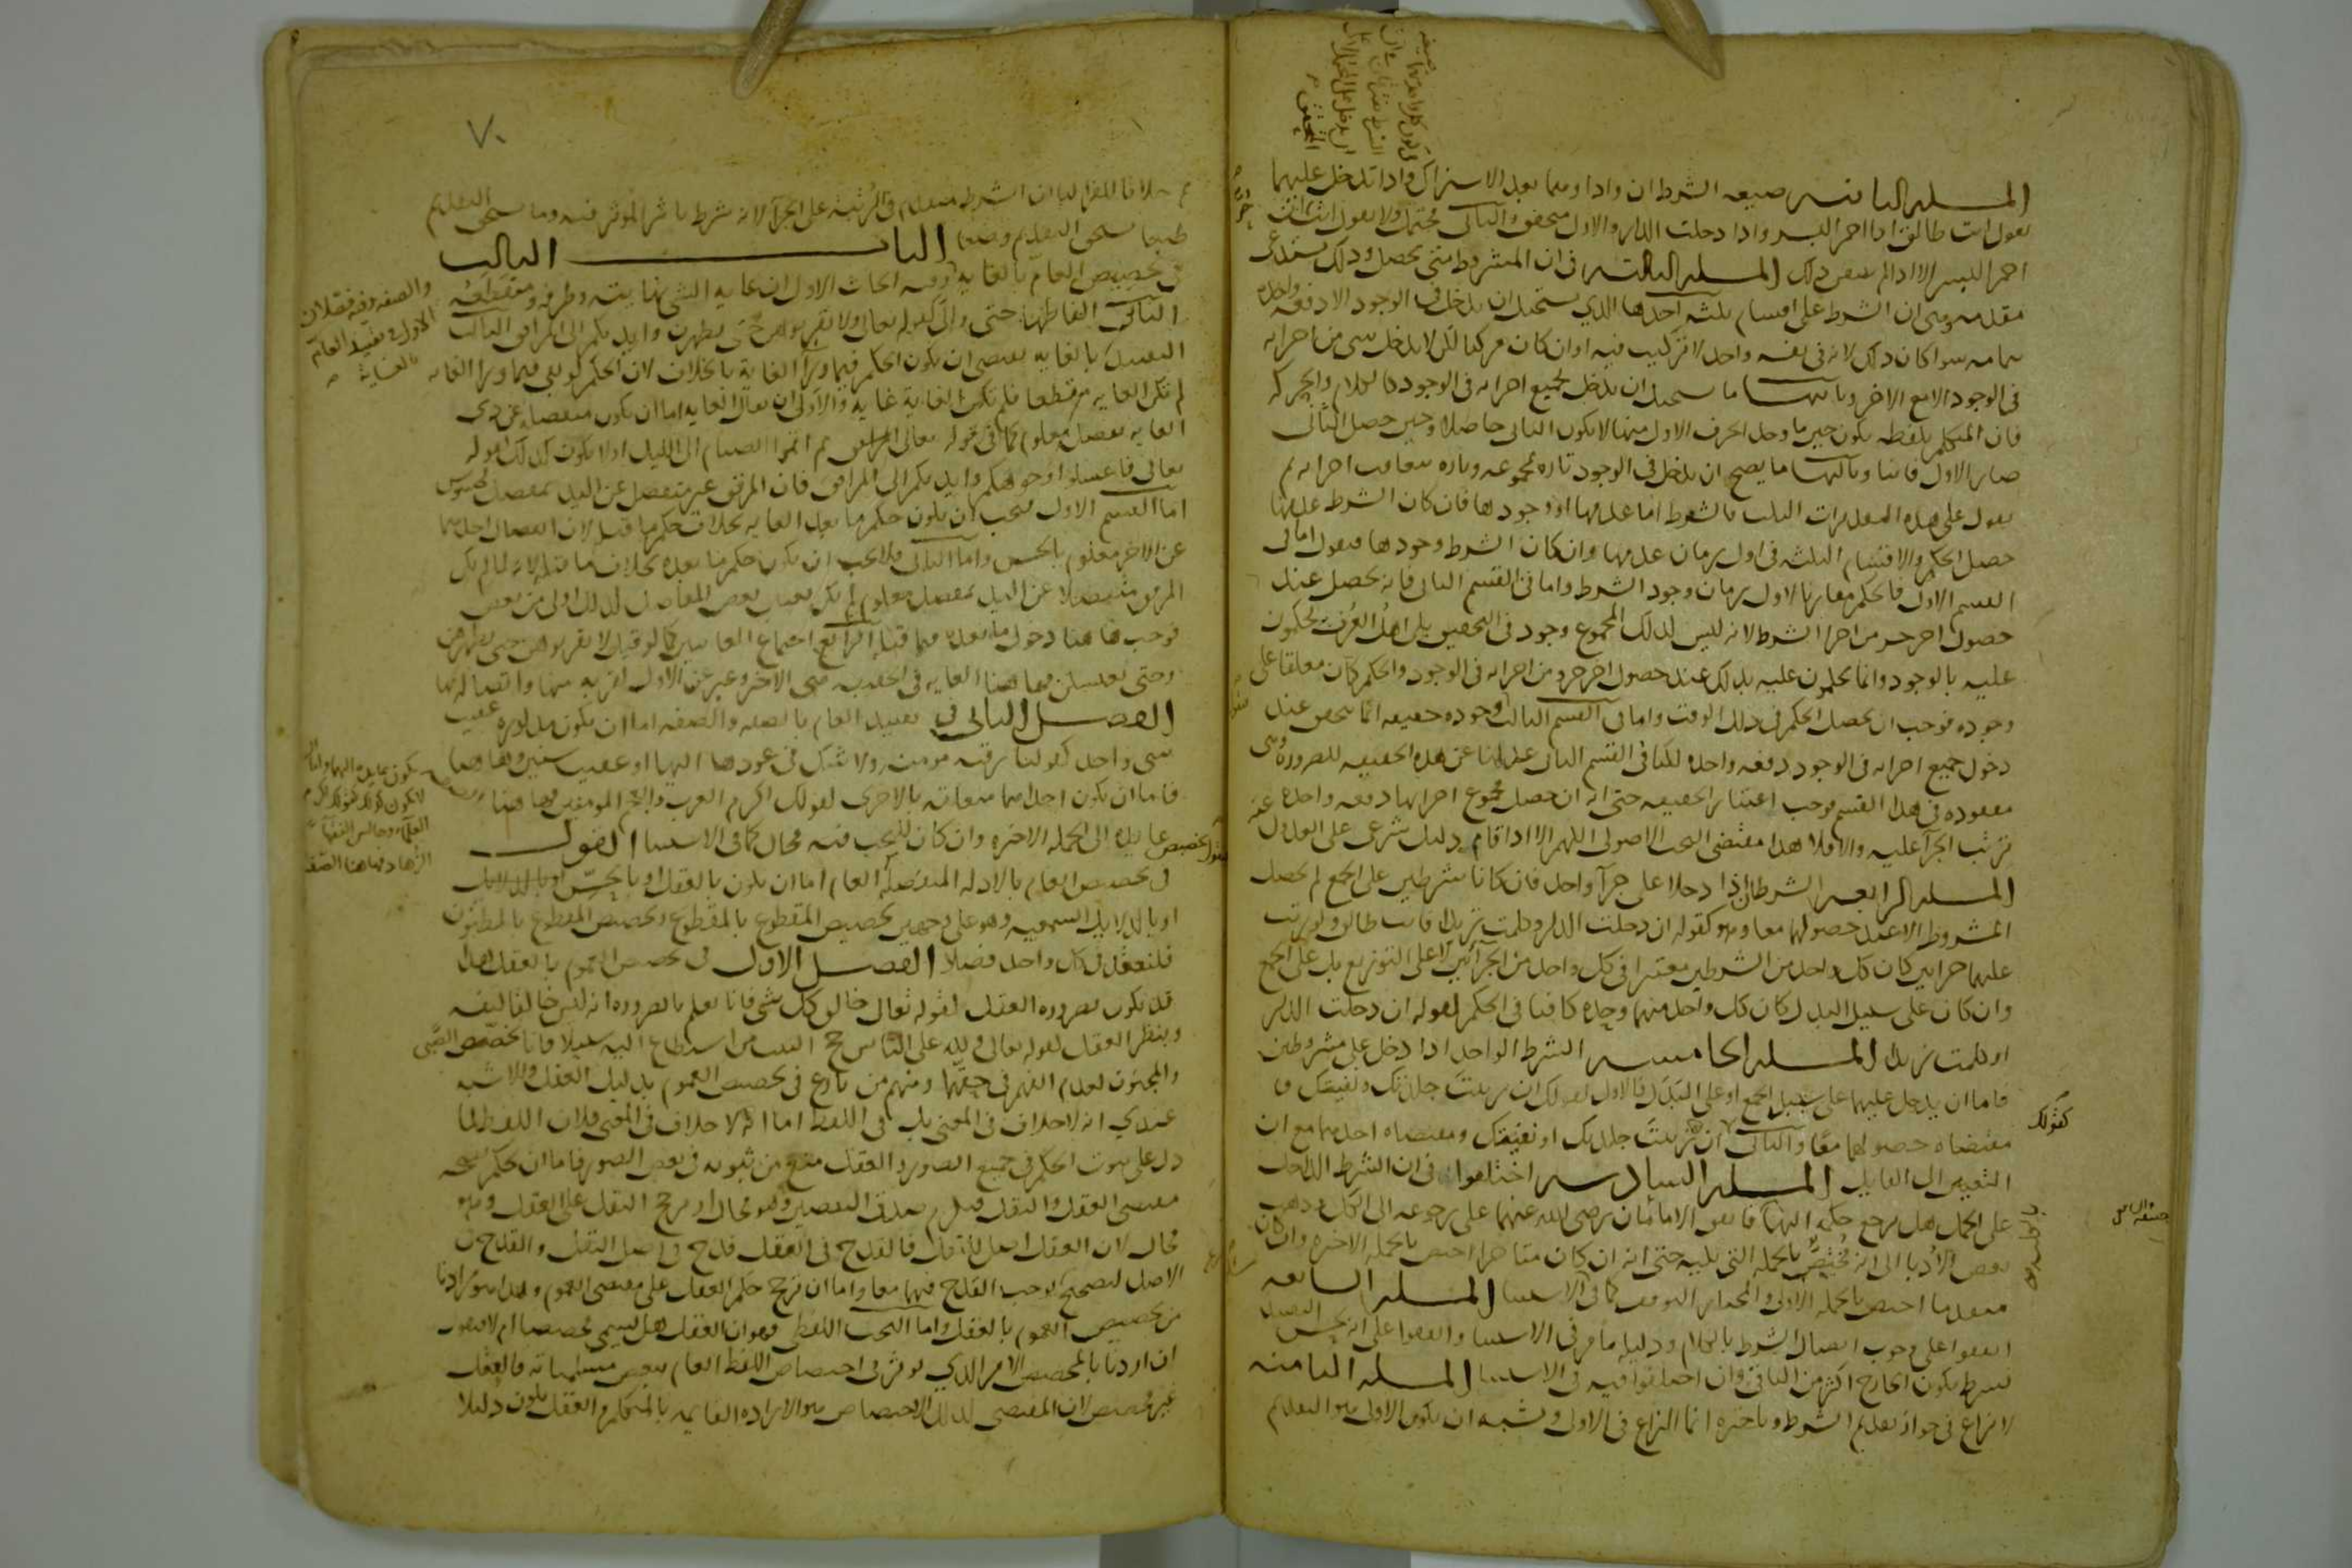 المسله الثانيه صيغه الشرط ان واذا وهما بعد الاشتراك واذا تدخل عليهما
تقول انت طالق اذا احمر البسر واذا دخلت الدار والاول متحقق والثاني محتمل ولا تقول انت طالق ان
احمر البسر الا اذا لم يتيقن ذلك المسله الثالثه في ان المشروط متى يحصل وذلك يستدعى
مقدمه وهى ان الشرط على اقسام ثلثه احدها الذي يستحيل ان يدخل في الوجود الا دفعه واحده
بتمامه سوا كان ذلك لانه في نفسه واحد لا تركيب فيه او ان كان مركبا لكن لا يدخل شى من اجزايه
في الوجود الا مع الاخر وثانيها ما يستحيل ان يدخل بجميع اجزايه في الوجود كالكلام والحركه
فان المتكلم بلفظه يكون حين ما وجد الحرف الاول منها لا يكون الثاني حاصلا وحين حصل الثاني
صار الاول فانيا وثالثها ما يصح ان يدخل في الوجود تاره بمجموعه وتاره بتعاقب اجزايه ثم
نقول على هذه التقديرات الثلث فالشرط اما عدمها او وجودها فان كان الشرط عدمها
حصل الحكم والاقسام الثلثه في اول زمان عدمها وان كان الشرط وجودها فنقول اما في
القسم الاول فالحكم مقارنا لاول زمان وجود الشرط واما في القسم الثاني فانه يحصل عند
حصول اخر جزء من اجزا الشرط لانه ليس لذلك المجموع وجود في التحقيق بل اهل العرف يحكمون
عليه بالوجود وانما يحكمون عليه بذلك عند حصول اخر جزو من اجزايه في الوجود والحكم كان معلقا على
وجوده فوجب ان يحصل الحكم في ذلك الوقت واما في القسم الثالث وجوده حقيقه انما يتحقق عند
دخول جميع اجزايه في الوجود دفعه واحده لكنا في القسم الثاني عدلنا عن هذه الحقيقه للضروره وهى
مفقوده في هذا القسم فوجب اعتبار الحقيقه حتى انه ان حصل مجموع اجزايها دفعه واحده
ترتب الجزآ عليه والا فلا هذا مقتضى البحث الاصولى اللهم الا اذا قام دليل شرعى على العدول عنه
المسله الرابعه الشرطان اذا دخلا على جزآ واحد فان كانا شرطين على الجمع لم يحصل
المشروط الا عند حصولهما معا وهو كقوله ان دخلت الدار وكلمت زيدا فانت طالق ولو رتب
عليهما جزاين كان كل واحد من الشرطين معتبرا في كل واحد من الجزآئين لا على التوزيع بل على الجمع
وان كان على سبيل البدل كان كل واحد منهما وحده كافيا في الحكم كقوله ان دخلت الدار
او كلمت زيدا المسله الخامسه الشرط الواحد اذا دخل على مشروطين
فاما ان يدخل عليهما على سبيل الجمع او على البدل فالاول كقولك ان زنيت جلدتك ونفيتك
مقتضاه حصولهما معا والثاني ان زنيت جلدتك او نفيتك ومقتضاه احدهما مع ان
التعيين الى القايل المسله السادسه اختلفوا في ان الشرط الداخل
على الجمل هل يرجع حكمه اليها فاتفق الامامان رضى الله عنهما على رجوعه الى الكل وذهب
بعض الادبا الى انه مختص بالجمله التي تليه حتى انه ان كان متاخرا اختص بالجمله الاخيره وان كان
متقدما اختص بالجمله الاولى والمختار التوقف كما في الاستثنا المسله السابعه
اتفقوا على وجوب اتصال الشرط بالكلام ودليله ما مر في الاستثنا واتفقوا على انه يحسن التقييد
بشرط يكون الخارج اكثر من الباقي وان اختلفوا فيه في الاستثنا المسله الثامنه
لا نزاع في جواز تقديم الشرط وتاخيره انما النزاع في الاولى ويشبه ان يكون الاولى هو التقديم
كقولك
٧٠
خلافا للفرا لنا ان الشرط متقدم في الرتبه على الجزآ لانه شرط تاثير الموثر فيه وما يستحق التقديم
طبعا يستحق التقديم وضعا الباب الثالث
في تخصيص العام بالغايه وفيه ابحاث الاول ان غايه الشى نهايته وطرفه ومقطعه
الثاني الفاظها حتى والى كقوله تعالى ولا تقربوهن حتى يطهرن وايديكم الى المرافق الثالث
التقييد بالغايه يقتضى ان يكون الحكم فيما ورآ الغاية بالخلاف لان الحكم لو بقى فيما ورآ الغايه
لم تكن الغايه مقطعا فلم تكن الغاية غاية والاولى ان يقال الغايه اما ان تكون منفصله عن ذى
الغايه بمفصل معلوم كما في قوله تعالى ثم اتموا الصيام الى الليل او لا يكون كذلك كقوله
تعالى فاغسلوا وجوهكم وايديكم الى المرافق فان المرفق غير منفصل عن اليد بمفصل محسوس
اما القسم الاول فيجب ان يكون حكم ما بعد الغايه بخلاف حكم ما قبل لان انفصال احدهما
عن الاخر معلوم بالحس واما الثاني فلا يجب ان يكون حكم ما بعده بخلاف ما قبله لانه لما لم يكن
المرفق منفصلا عن اليد بمفصل معلوم لم يكن تعيين بعض المفاصل لذلك اولى من بعض
فوجب هاهنا دخول ما بعده فيما قبله الرابع اجتماع الغايتين كما لو قيل لا تقربوهن حتى يطهرن
وحتى يغتسلن فهاهنا الغايه في الحقيقه هى الاخيره وعبر عن الاول لقربه منها واتصاله بها
الفصل الثاني في تقييد العام بالصفه والصفه اما ان تكون مذكوره عقيب
شى واحد كقولنا رقبه مومنه ولا شك في عودها اليها او عقيب شيئين وهاهنا
فاما ان يكون احداهما متعلقه بالاخرى كقولك اكرم العرب والعجم المومنين فهاهنا
عايده الى الجمله الاخيره وان كان للبحث فيه مجال كما في الاستثنا القول
في تخصيص العام بالادله المنفصله العام اما ان يكون بالعقل او بالحس او بالدلايل
او بالدلايل السمعيه وهو على وجهين تخصيص المقطوع بالمقطوع وتخصيص المقطوع بالمظنون
فلنعقد في كل واحد فصلا الفصل الاول في تخصيص العموم بالعقل هذا
قد يكون بضروره العقل كقوله تعالى خالق كل شى فانا نعلم بالضروره انه ليس خالقا لنفسه
وبنظر العقل كقوله تعالى ولله على الناس حج البيت من استطاع اليه سبيلا فانا نخصص الصبى
والمجنون لعدم الفهم في حقهما ومنهم من نازع في تخصيص العموم بدليل العقل والاشبه
عندي انه لا خلاف في المعنى بل في اللفظ اما انه لا خلاف في المعنى فلان اللفظ لما
دل على ثبوت الحكم في جميع الصور والعقل منع من ثبوته في بعض الصور فاما ان نحكم بصحه
مقتضى العقل والنقل فيلزم صدق النقيضين وهو محال او نرجح النقل على العقل وهو
محال لان العقل اصل للنقل فالقدح في العقل قدح في اصل النقل والقدح في
الاصل لتصحيح يوجب القدح فيهما معا واما ان نرجح حكم العقل على مقتضى العموم وهذا هو مرادنا
من تخصيص العموم بالعقل واما البحث اللفظى فهو ان العقل هل يسمى مخصصا ام لا فنقول
ان اردنا بالمخصص الامر الذي يوثر في اختصاص اللفظ العام ببعض مسمياته فالعقل
غير مخصص لان المقتضى لذلك الاختصاص هو الاراده القايمه بالمتكلم والعقل يكون دليلا
والصفه وفيه فصلان
الاول في تقييد العام
بالغاية